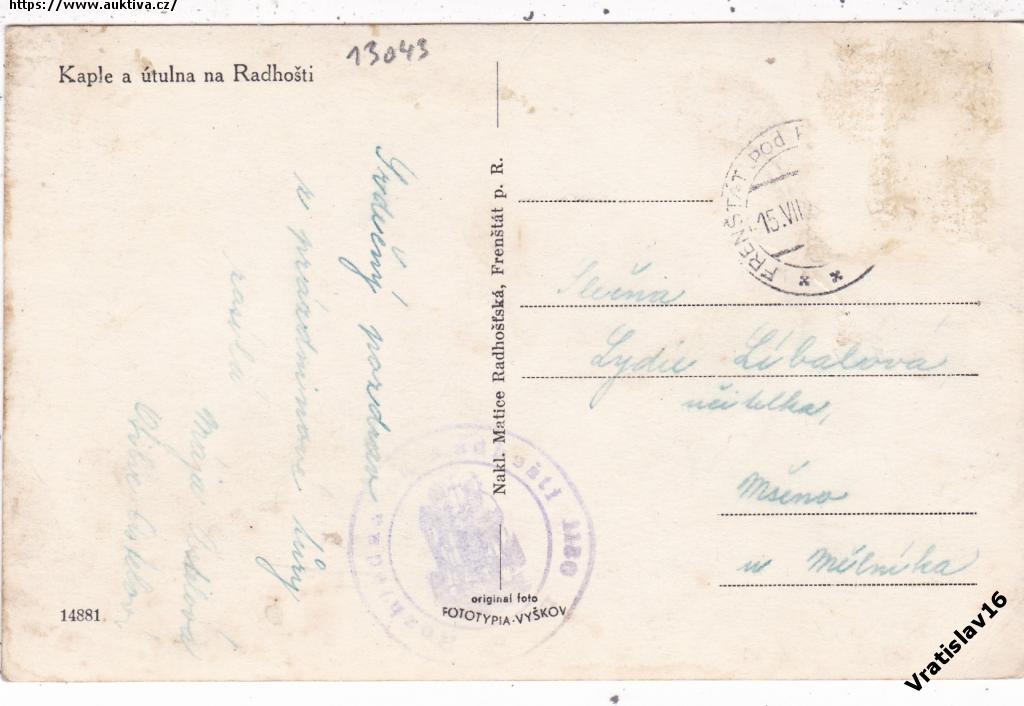 https://www.auktiva.cz/
13043
Kaple a útulna na Radhošti
Srdečný pozdrav
z prázdninové túry
zasílá
Nakl. Matice Radhošťská, Frenštát p. R.
FRENŠTÁT pod
15.VII
Slečna
Lydie Líbalová
učitelka,
Mšeno
u Mělníka
14881
original foto
FOTOTYPIA-VYŠKOV
Vratislav16